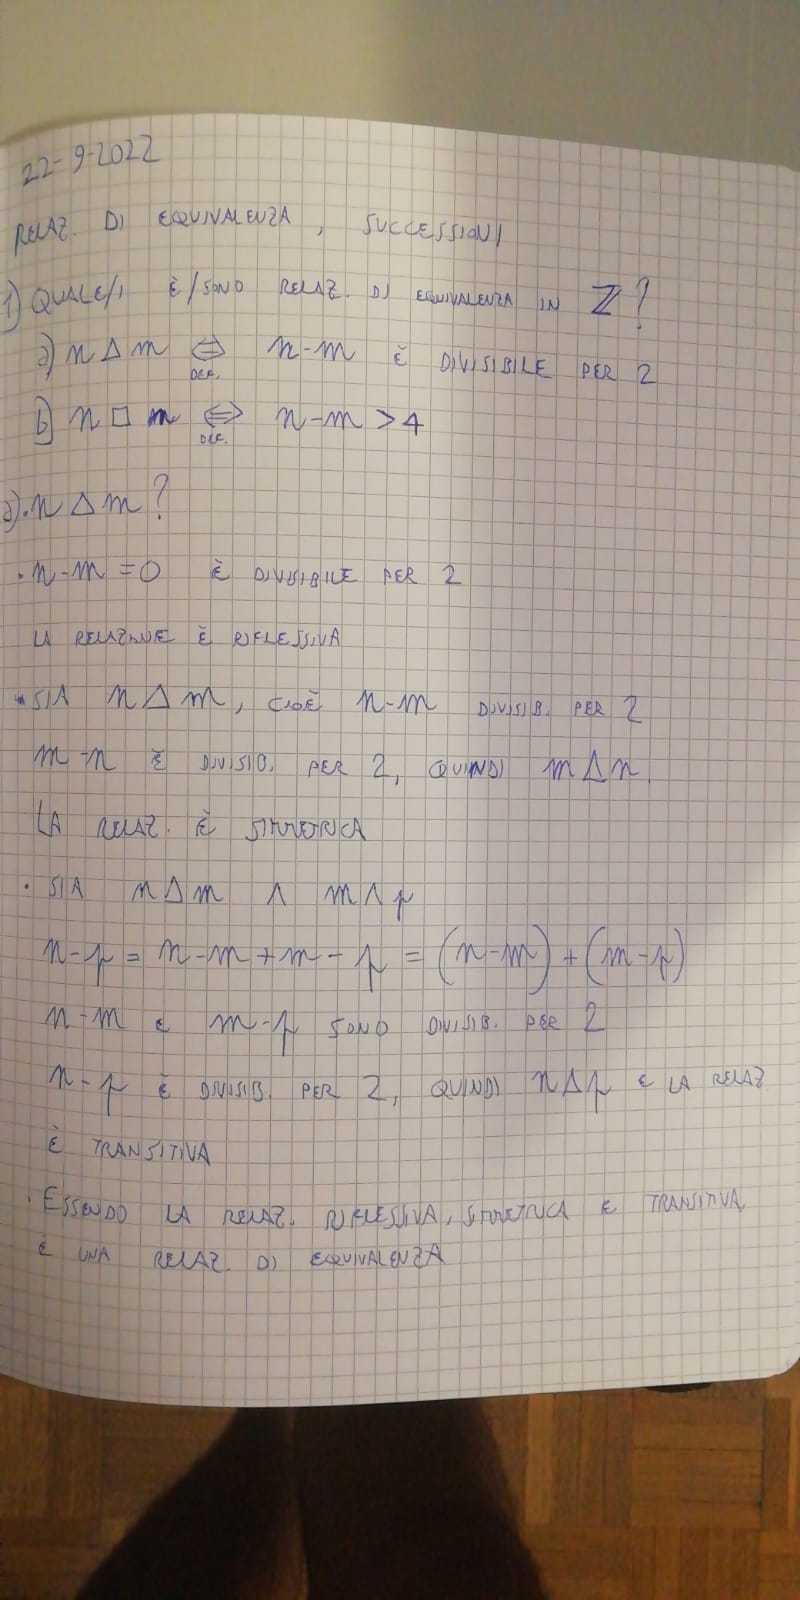 22-9-2022
RELAZ. DI EQUIVALENZA, SUCCESSIONI
1) QUALE/I È/SONO RELAZ. DI EQUIVALENZA IN ℤ?
a) n △ m ⇔ n-m È DIVISIBILE PER 2
DEF.
b) n □ m ⇔ n-m > 4
DEF.
a). n △ m?
• n-m = 0 È DIVISIBILE PER 2
LA RELAZIONE È RIFLESSIVA
• SIA n △ m, CIOÈ n-m DIVISIB. PER 2
m-n È DIVISIB. PER 2, QUINDI m △ n.
LA RELAZ. È SIMMETRICA
• SIA n △ m ∧ m ∧ p
n-p = n-m+m-p = (n-m)+(m-p)
n-m E m-p SONO DIVISIB. PER 2
n-p È DIVISIB. PER 2, QUINDI n △ p E LA RELAZ
È TRANSITIVA
• ESSENDO LA RELAZ. RIFLESSIVA, SIMMETRICA E TRANSITIVA,
È UNA RELAZ. DI EQUIVALENZA